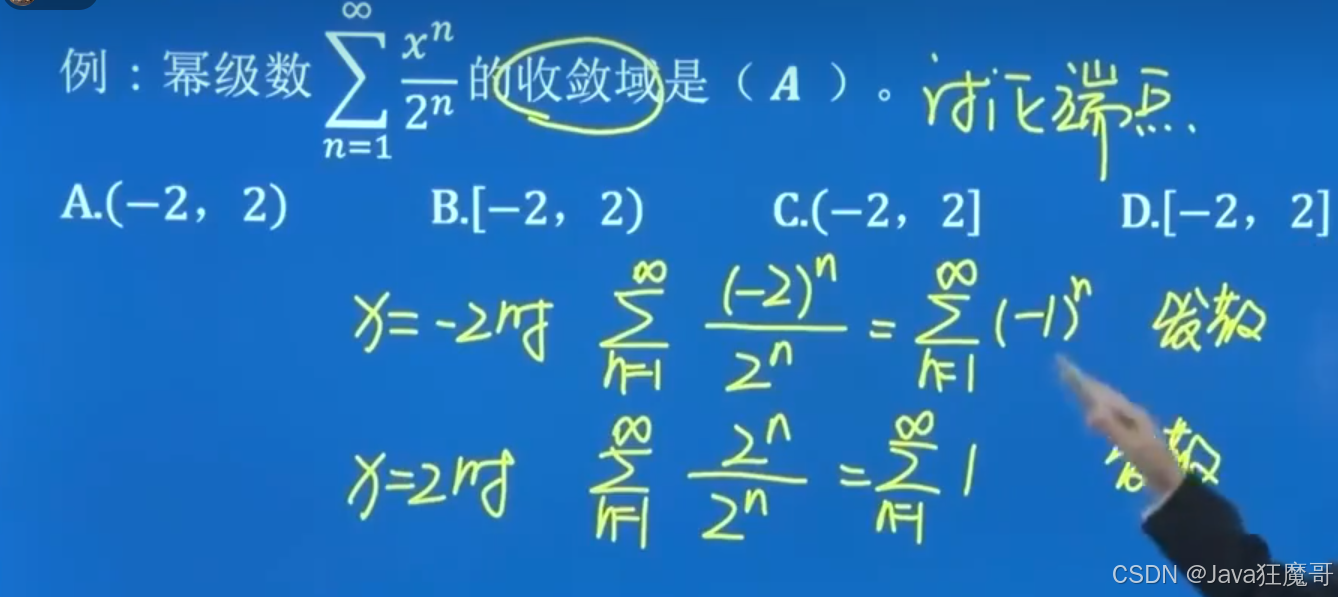 例：幂级数 $\sum_{n=1}^{\infty} \frac{x^n}{2^n}$ 的收敛域是（ A ）。 讨论端点.
A.(−2，2) B.[−2，2) C.(−2，2] D.[−2，2]
x=-2时 $\sum_{n=1}^{\infty} \frac{(-2)^n}{2^n} = \sum_{n=1}^{\infty} (-1)^n$ 发散
x=2时 $\sum_{n=1}^{\infty} \frac{2^n}{2^n} = \sum_{n=1}^{\infty} 1$ 发散
CSDN @Java狂魔哥